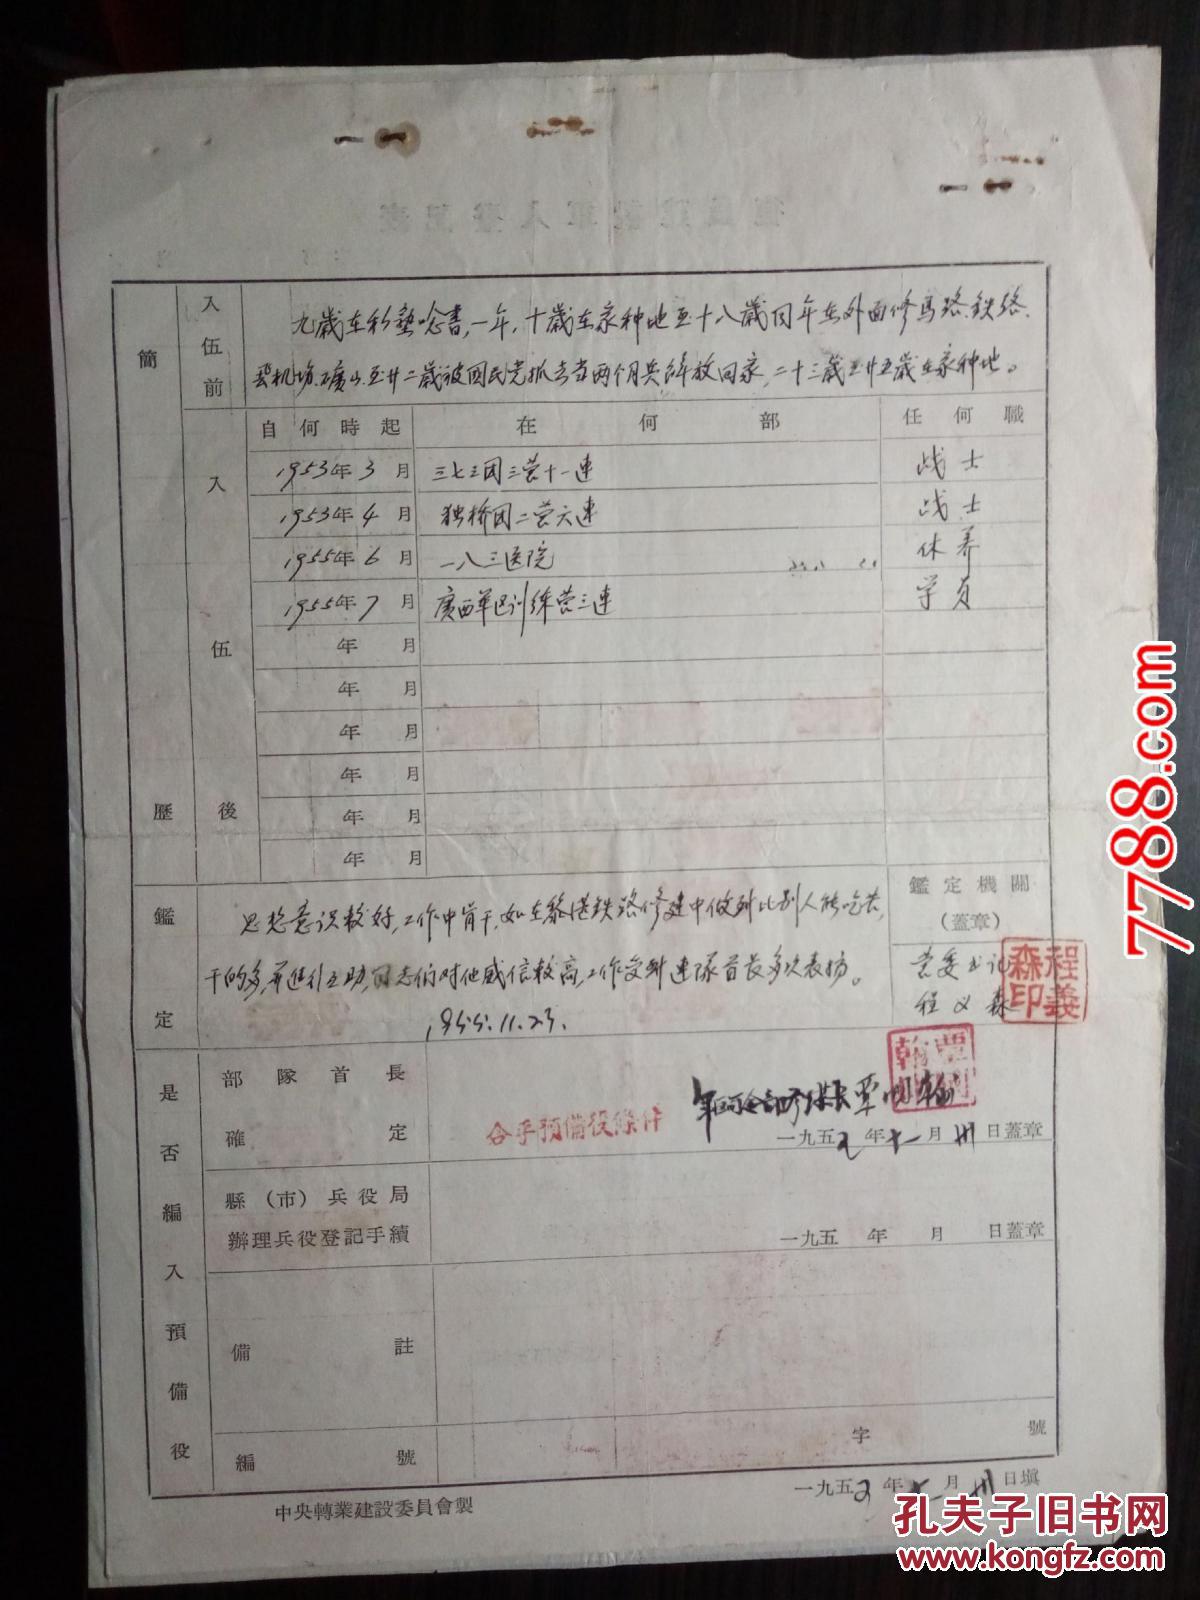 簡歷
入伍前
九歲在私塾唸書,一年,十歲在家种地至十八歲同年在外面修马路.铁路.
飛机场.礦山.至廿二歲被國民党抓去当两个月兵解放回家,二十三歲至廿五歲在家种地。
入伍後
自何時起 在何部 任何職
1953年3月 三七三团三营十一連 战士
1953年4月 独桥团二营六連 战士
1955年6月 一八三医院 休养
1955年7月 廣西軍区训练营三連 学员
年 月
年 月
年 月
年 月
年 月
年 月
鑑定
思想意识較好,工作中肯干,如在黎湛铁路修建中做到比别人能吃苦,
干的多,并進行互助,同志们对他威信較高,工作受到連隊首長多次表扬。
1955.11.23.
鑑定機關
(蓋章)
党委书记
程义森
程義森印
是否編入預備役
部隊首長
確定
合乎預備役條件
一九五五年十一月卅日蓋章
縣(市)兵役局
辦理兵役登記手續
一九五 年 月 日蓋章
備註
編號 字 號
一九五五年十一月卅日填
中央轉業建設委員會製
7788.com
孔夫子旧书网
www.kongfz.com